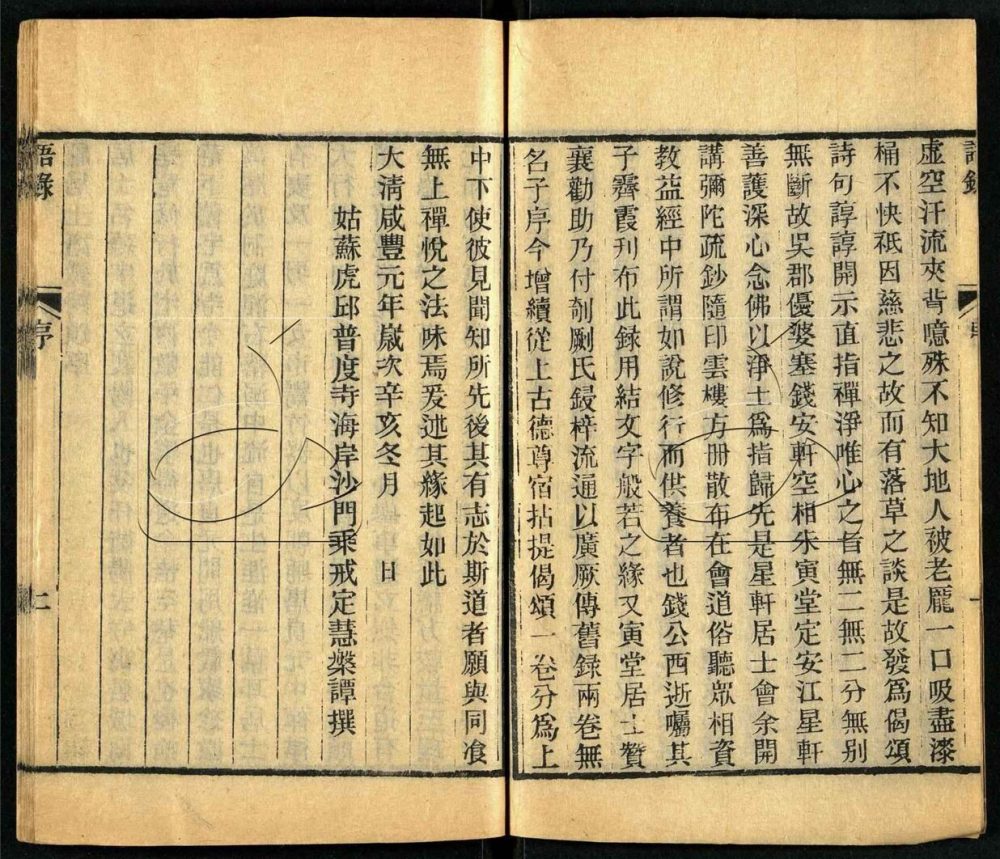 語錄
虛空汗流夾背噫殊不知大地人被老龎一口吸盡漆
桶不快秖因慈悲之故而有落草之談是故發爲偈頌
詩句諄諄開示直指禪淨唯心之旨無二無二分無别
無斷故吳郡優婆塞錢安軒空相朱寅堂定安江星軒
善護深心念佛以淨土爲指歸先是星軒居士會余開
講彌陀疏鈔隨印雲樓方册散布在會道俗聽眾相資
教益經中所謂如說修行而供養者也錢公西逝囑其
子霽霞刊布此録用結文字般若之緣又寅堂居士贊
襄勸助乃付剞劂氏鋟梓流通以廣厥傳舊錄兩卷無
名子序今增續從上古德尊宿拈提偈頌一卷分爲上
中下使彼見聞知所先後其有志於斯道者願與同飡
無上禪悅之法味焉爰述其緣起如此
大淸咸豐元年歲次辛亥冬月　日
姑蘇虎邱普度寺海岸沙門乘戒定慧槃譚撰
語錄
序
二